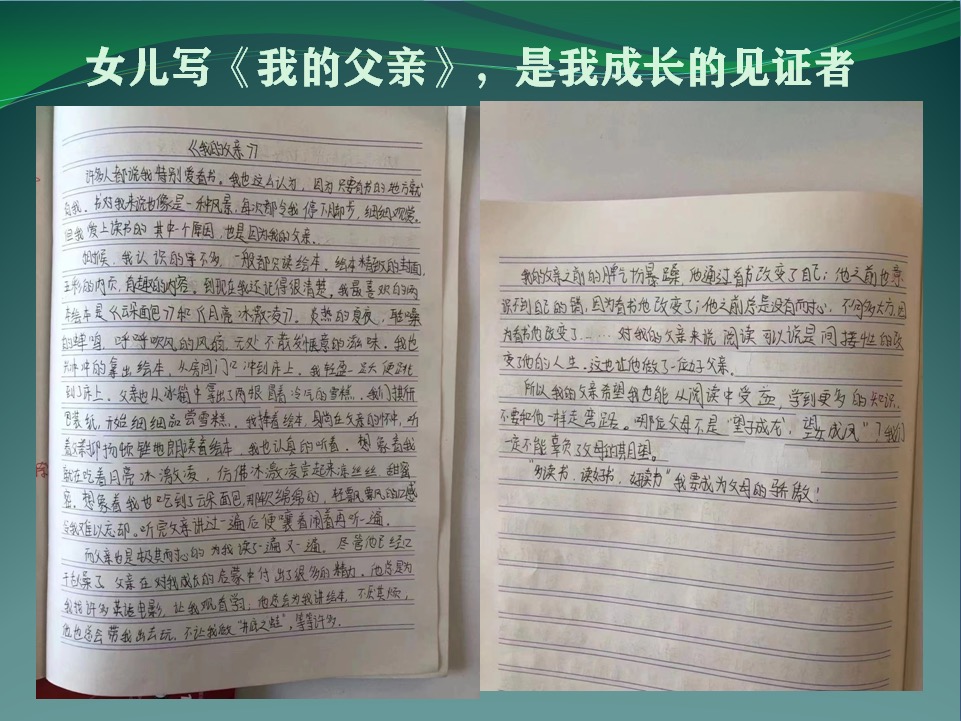 女儿写《我的父亲》，是我成长的见证者
《我的父亲》
许多人都说我特别爱看书。我也这么认为，因为只要有书的地方就
有我。书对我来说也像是一种风景，每次都令我停下脚步，细细观赏。
但我爱上读书的其中一个原因，也是因为我的父亲。
小时候，我认识的字不多，一般都只读绘本。绘本精致的封面，
五彩的内页，有趣的内容，到现在我还记得很清楚。我最喜欢的两
本绘本是《云朵面包》和《月亮冰激凌》。炎热的夏夜，聒噪
的蝉鸣，呼呼吹风的风扇，无处不散发惬意的滋味。我也
兴冲冲的拿出绘本，从房间门口冲到床上。我轻盈一跃便跳
到了床上。父亲也从冰箱中拿出了两根冒着冷气的雪糕，我们撕开
包装纸，开始细细品尝雪糕。我捧着绘本，身陷在父亲的怀中，听
着父亲抑扬顿挫地朗读着绘本。我也认真的听着，想象着我
就在吃着月亮冰激凌，仿佛冰激凌尝起来凉丝丝，甜蜜
蜜。想象着我也吃到了云朵面包，那软绵绵的，轻飘飘的口感
令我难以忘却。听完父亲讲过一遍后便嚷着闹着再听一遍。
而父亲也是极其耐心的为我读了一遍又一遍，尽管他已经口
干舌燥了。父亲在对我成长的启蒙中付出了很多的精力，他总是为
我找许多英语电影，让我观看学习；他总会为我讲绘本，不厌其烦，
他也总会带我出去玩，不让我做“井底之蛙”，等等许多。
我的父亲之前的脾气扮暴躁，他通过看书改变了自己；他之前也意
识不到自己的错，因为看书他改变了；他之前总是没有耐心，不够大方，因
为看书他改变了……对我的父亲来说，阅读可以说是间接性的改
变了他的人生。这也让他做了一位好父亲。
所以我的父亲希望我也能从阅读中受益，学到更多的知识，
不要和他一样走弯路。哪位父母不是“望子成龙，望女成凤”？我们
一定不能辜负了父母的期望。
“多读书，读好书，好读书”我要成为父母的骄傲！